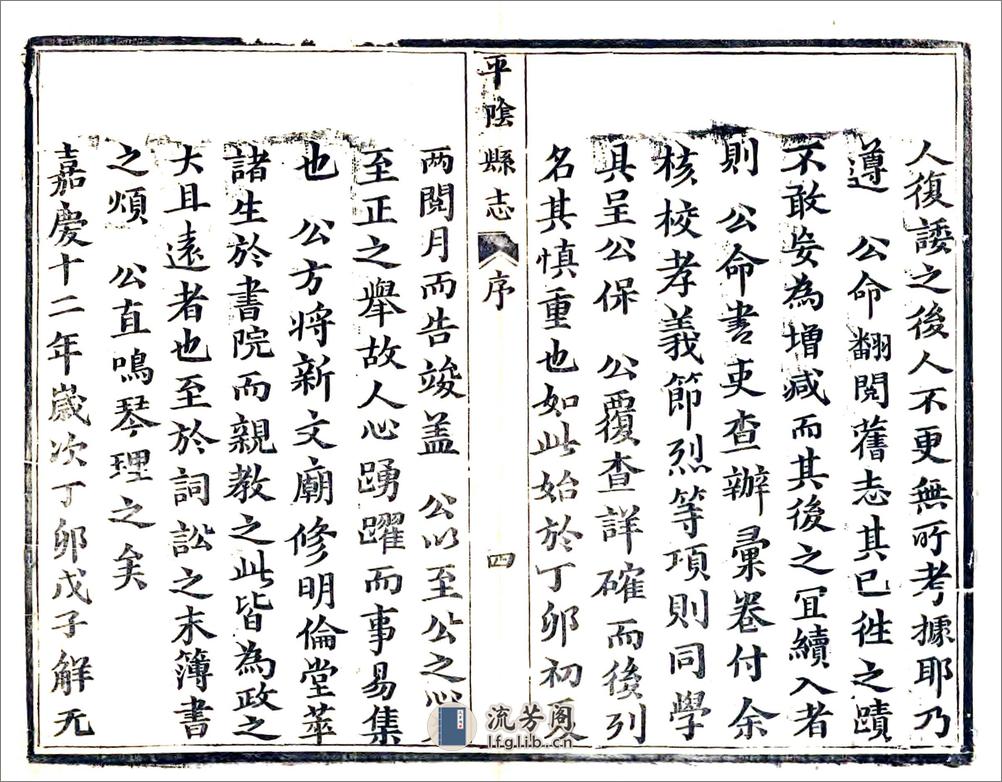 人復諉之後人不更無所考據耶乃
遵　公命翻閱舊志其已徃之蹟
不敢妄為增減而其後之冝續入者
則　公命書吏查辦彙卷付余
核校孝義節烈等項則同學
具呈公保　公覆查詳確而後列
名其慎重也如此始於丁卯初夏
平陰縣志
序
四
兩閱月而告竣盖　公以至公之心
至正之舉故人心踴躍而事易集
也　公方將新文廟修明倫堂萃
諸生於書院而親教之此皆為政之
大且遠者也至於詞訟之末簿書
之煩　公直鳴琴理之矣
嘉慶十二年歲次丁卯戊子解元
流芳阁
lfglib.cn